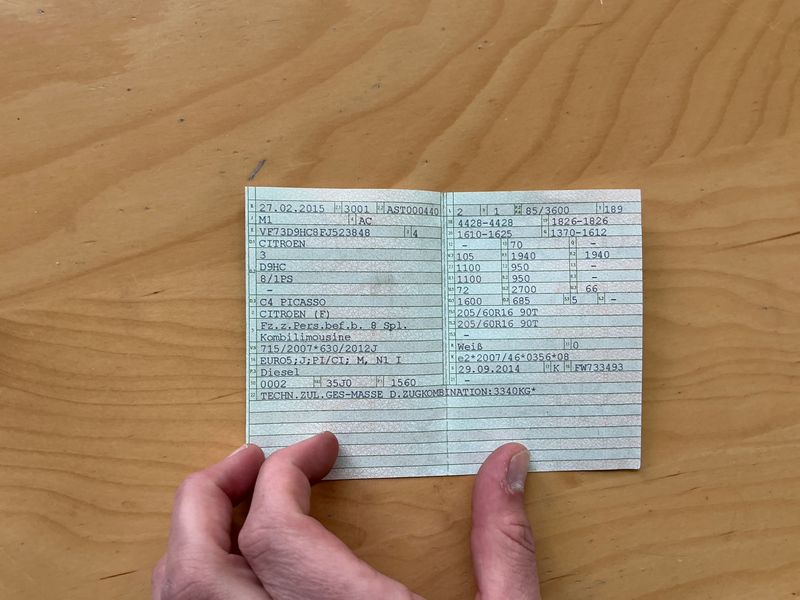 27.02.2015 3001 AST000440
M1 AC
VF73D9HC8FJ523848 4
CITROEN
3
D9HC
8/1PS
-
C4 PICASSO
CITROEN (F)
Fz.z.Pers.bef.b. 8 Spl.
Kombilimousine
715/2007*630/2012J
EURO5;J;PI/CI; M, N1 I
Diesel
0002 35J0 1560
TECHN.ZUL.GES-MASSE D.ZUGKOMBINATION:3340KG*
2 1 85/3600 189
4428-4428 1826-1826
1610-1625 1370-1612
- 70 -
105 1940 1940
1100 950 -
1100 950 -
72 2700 66
1600 685 5 -
205/60R16 90T
205/60R16 90T
-
Weiß 0
e2*2007/46*0356*08
29.09.2014 K FW733493
-